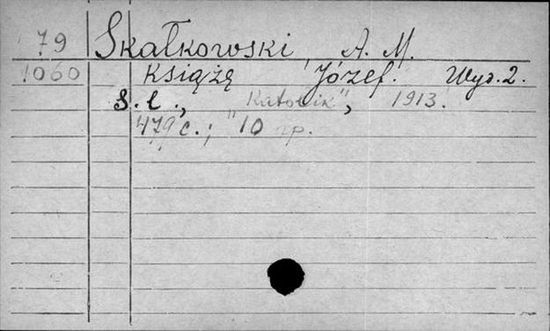 79 Skałkowski, A. M.
1060 Książę Józef. Wyd. 2.
S. l., "Katolik", 1913.
479 с.; 10 гр.